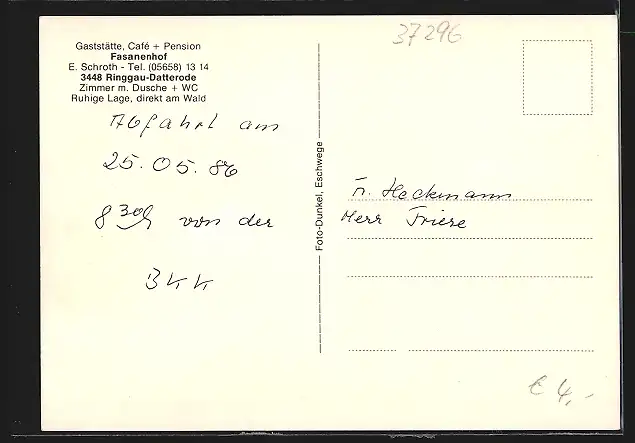 37296
Gaststätte, Café + Pension
Fasanenhof
E. Schroth - Tel. (05658) 13 14
3448 Ringgau-Datterode
Zimmer m. Dusche + WC
Ruhige Lage, direkt am Wald
Abfahrt am
25.05.86
8 30h von der
BKK
Foto-Dunkel, Eschwege
Fr. Heckmann
Herr Friese
€ 4,-